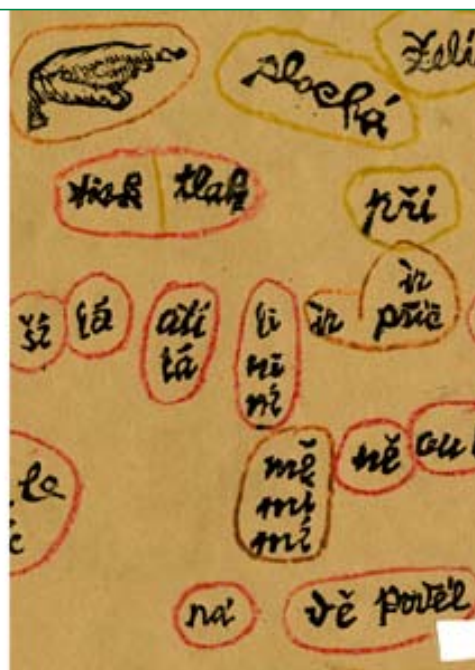 plochá
tisk tlak
při
ší tá atí
tá li
ni
ní ir ir
příč
mě
mi
mí ně ou
la
ná vě pověl